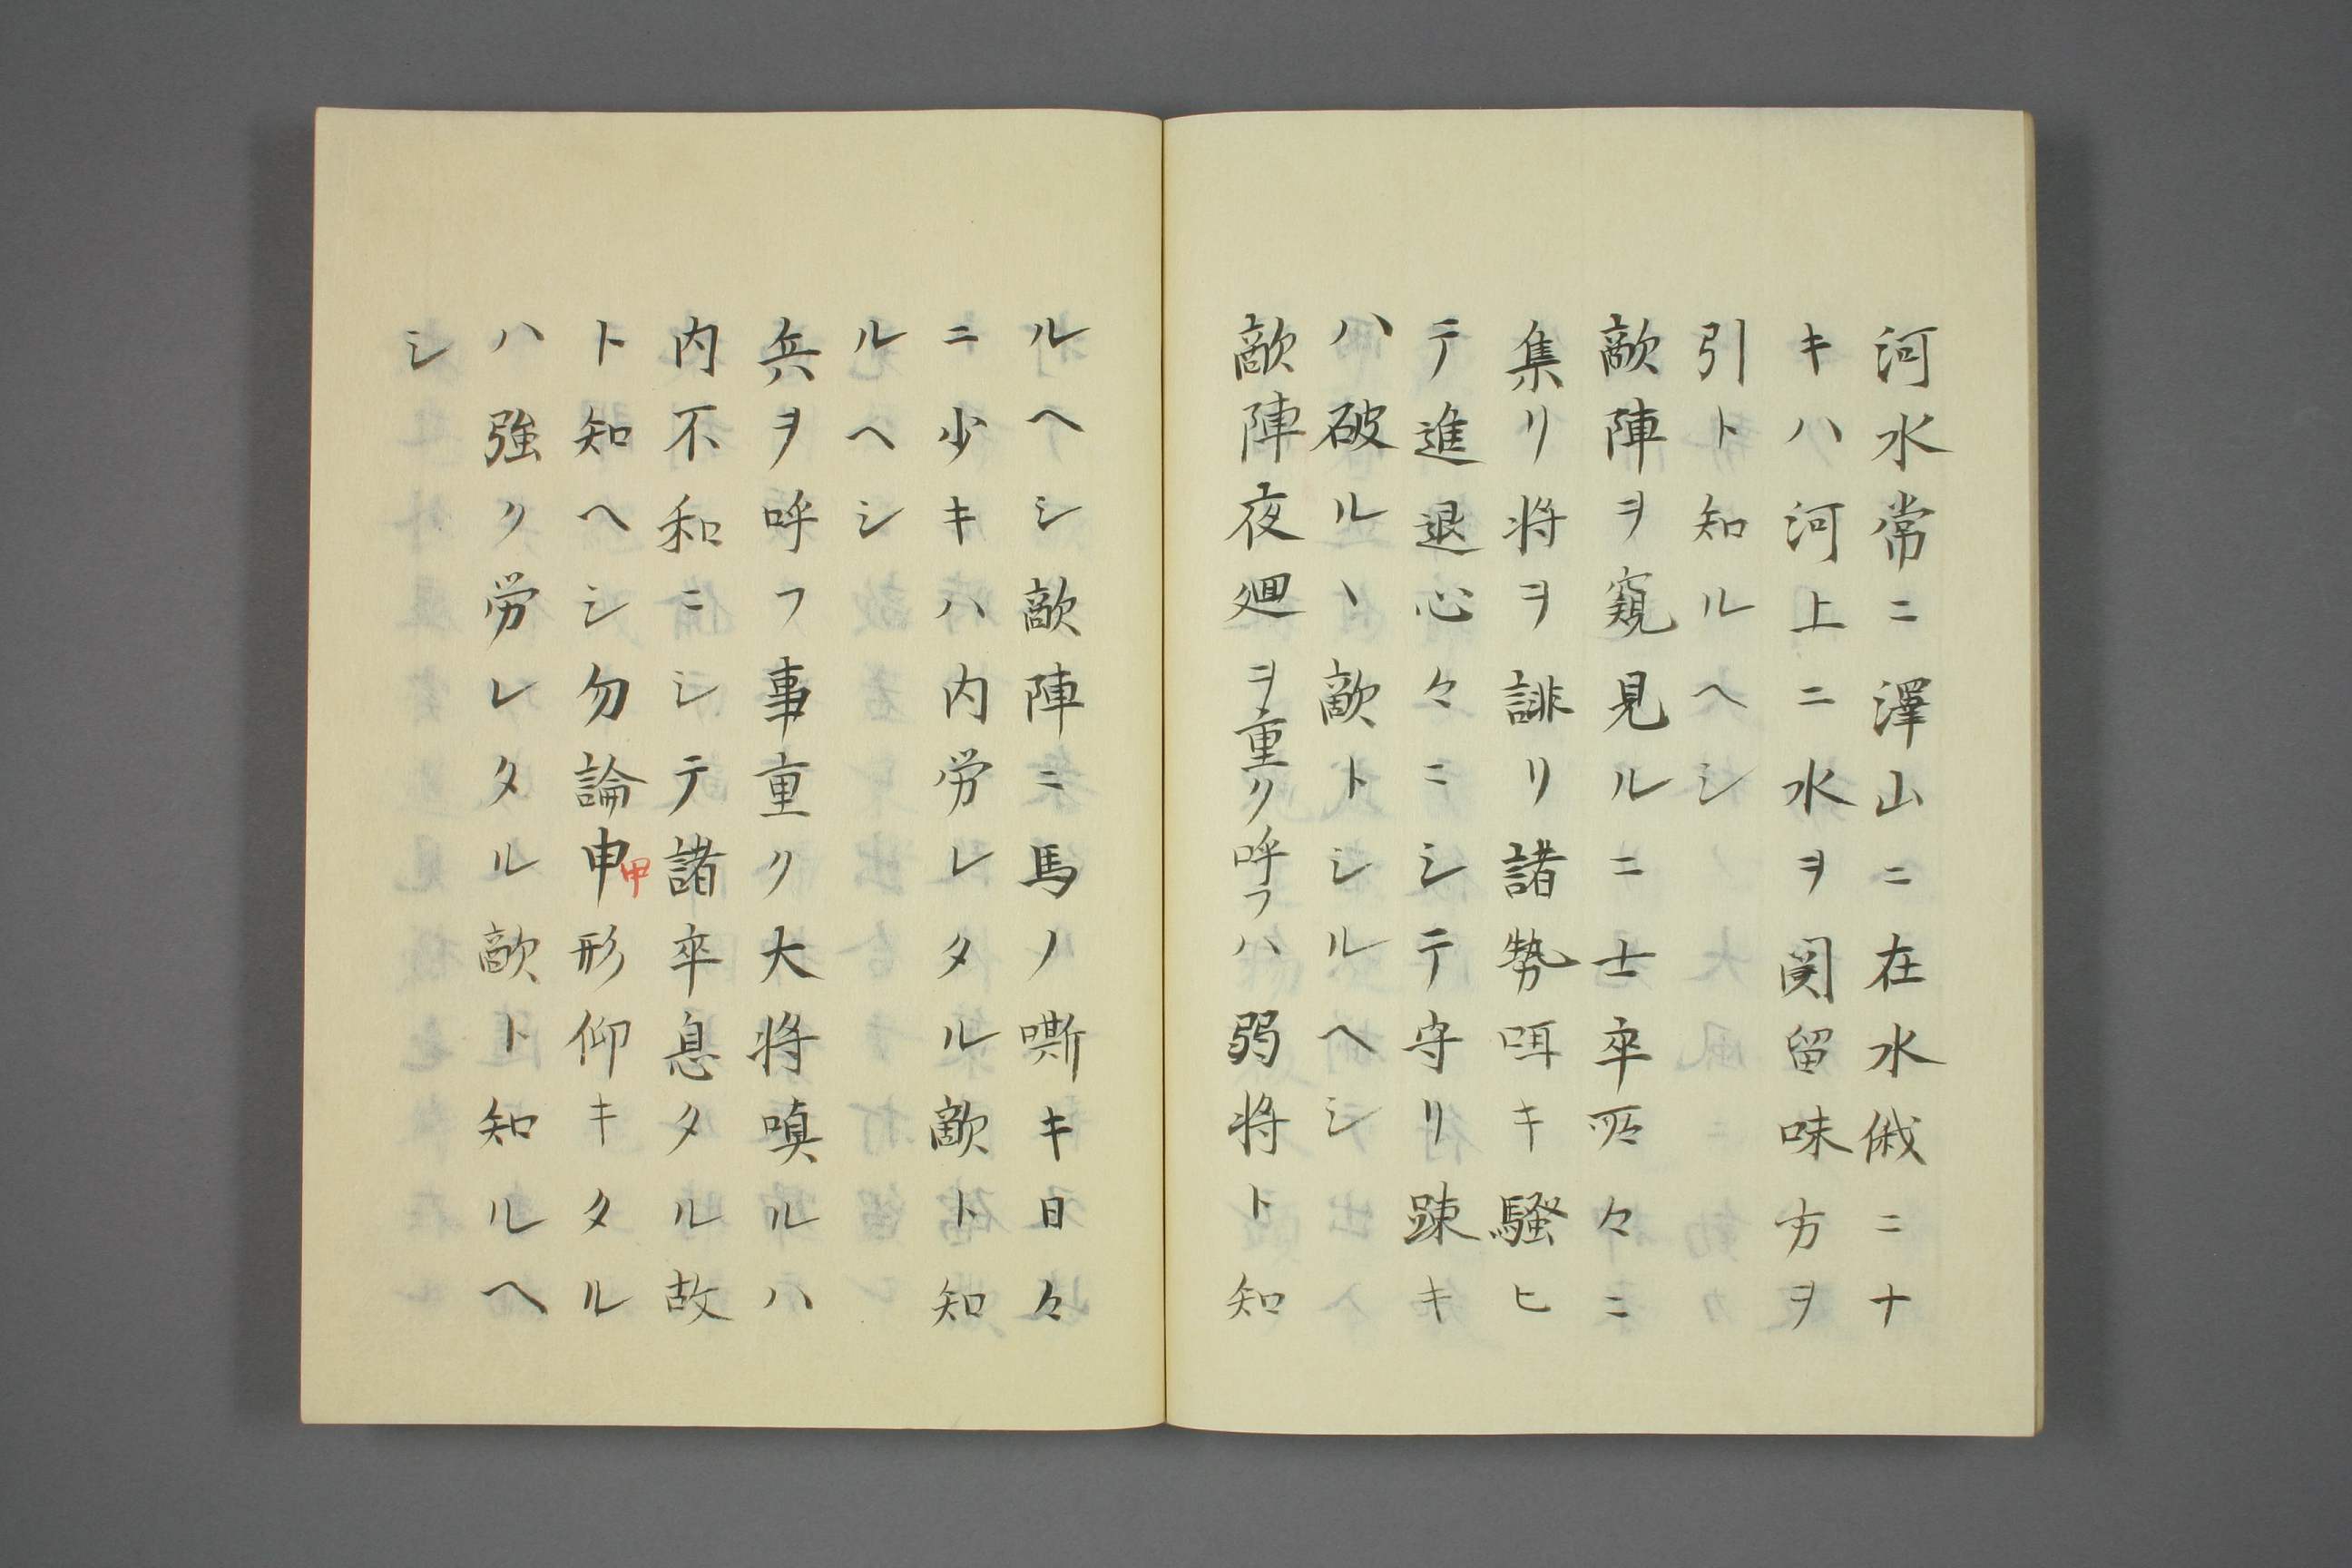 河水常ニ澤山ニ在水俄ニナ
キハ河上ニ水ヲ関留味方ヲ
引ト知ルヘシ
敵陣ヲ窺見ルニ士卒所々ニ
集リ将ヲ誹リ諸勢咡キ騒ヒ
テ進退心々ニシテ守リ踈キ
ハ破ルヽ敵トシルヘシ
敵陣夜廻ヲ重ク呼フハ弱将ト知
ルヘシ敵陣ニ馬ノ嘶キ日々
ニ少キハ内労レタル敵ト知
ルヘシ
兵ヲ呼フ事重ク大将嗔ルハ
内不和ニシテ諸卒息タル故
ト知ヘシ勿論申甲形仰キタル
ハ強ク労レタル敵ト知ルヘ
シ